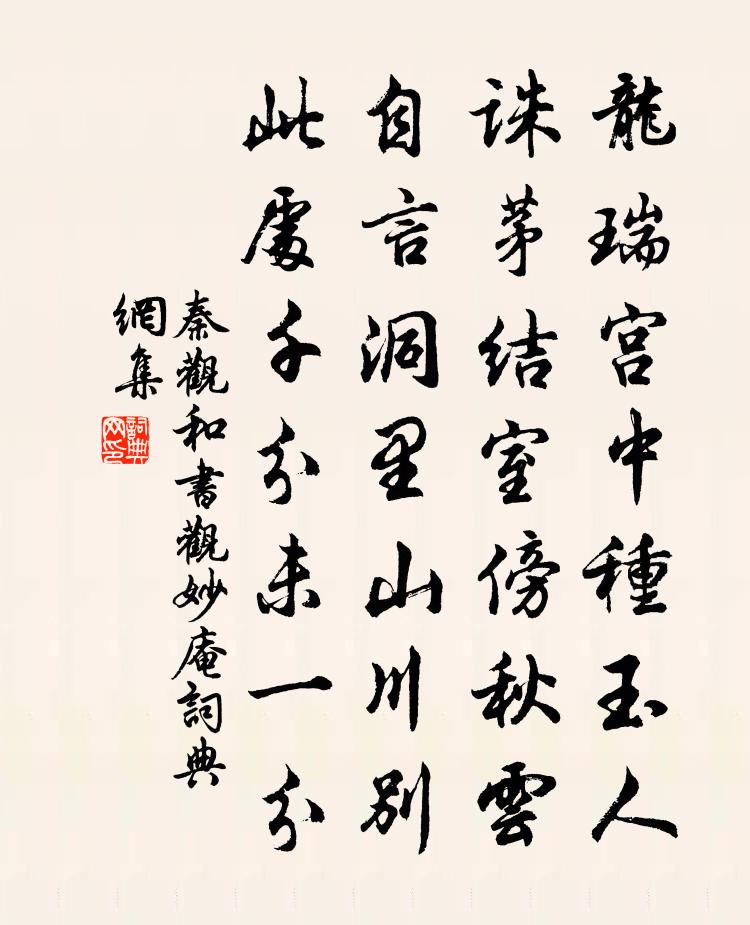 龍瑞宫中種玉人
誅茅結室傍秋雲
自言洞里山川別
此處千分未一分
秦觀和書觀妙庵詞典
網集
詞典网印